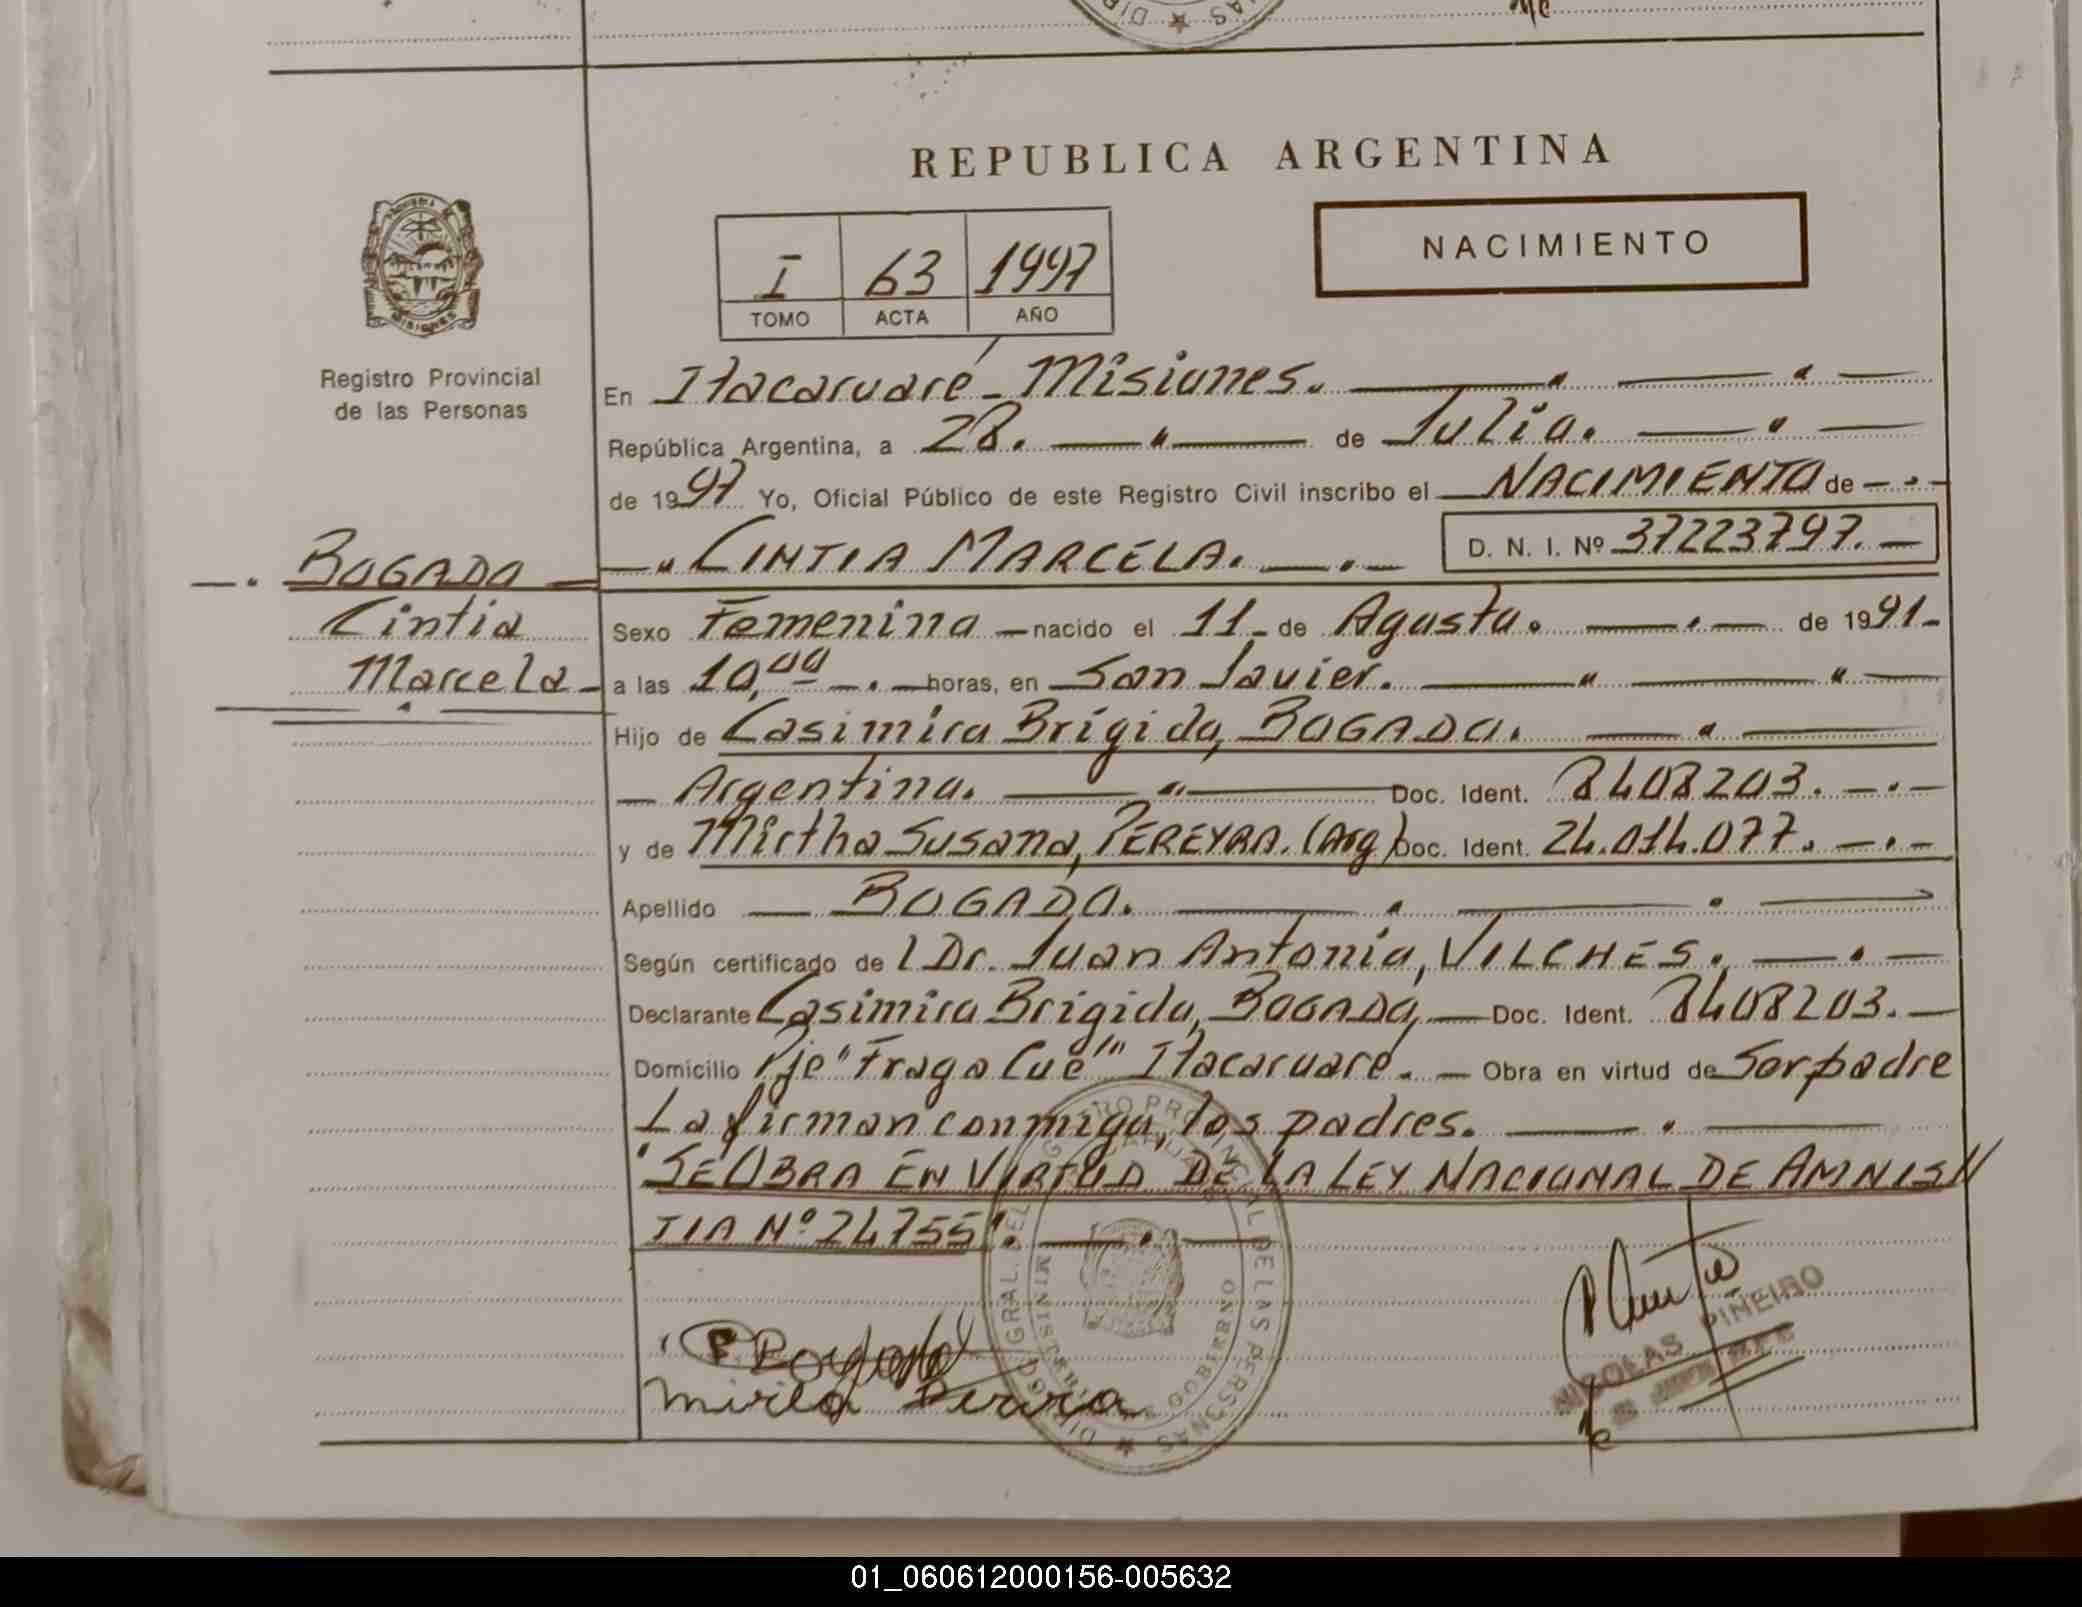 REPUBLICA ARGENTINA
NACIMIENTO
I 63 1997
TOMO ACTA AÑO
MISIONES
Registro Provincial
de las Personas
En Itacaruaré - Misiones.
República Argentina, a 28. de Julio.
de 1997 Yo, Oficial Público de este Registro Civil inscribo el NACIMIENTO de
BOGADO CINTIA MARCELA. D. N. I. Nº 37223797.
Cintia
Marcela
Sexo Femenino nacido el 11 de Agosto. de 1991
a las 10,00 horas, en San Javier.
Hijo de Casimiro Brígido, BOGADO.
Argentino. Doc. Ident. 8408203.
y de Mirtha Susana, PEREYRA. (Arg) Doc. Ident. 24.014.077.
Apellido BOGADO.
Según certificado de l Dr. Juan Antonio, VILCHES.
Declarante Casimiro Brigido, BOGADO, Doc. Ident. 8408203.
Domicilio Pje "Fraga Cué" Itacaruare. Obra en virtud de Ser padre
La firman conmigo, los padres.
"SE OBRA EN VIRTUD DE LA LEY NACIONAL DE AMNIS//
TIA Nº 24755".
DIRECC GRAL. DEL REGISTRO PROVINCIAL DE LAS PERSONAS
MINISTERIO GOBIERNO
Mirta
NICOLAS PIÑEIRO
01_060612000156-005632